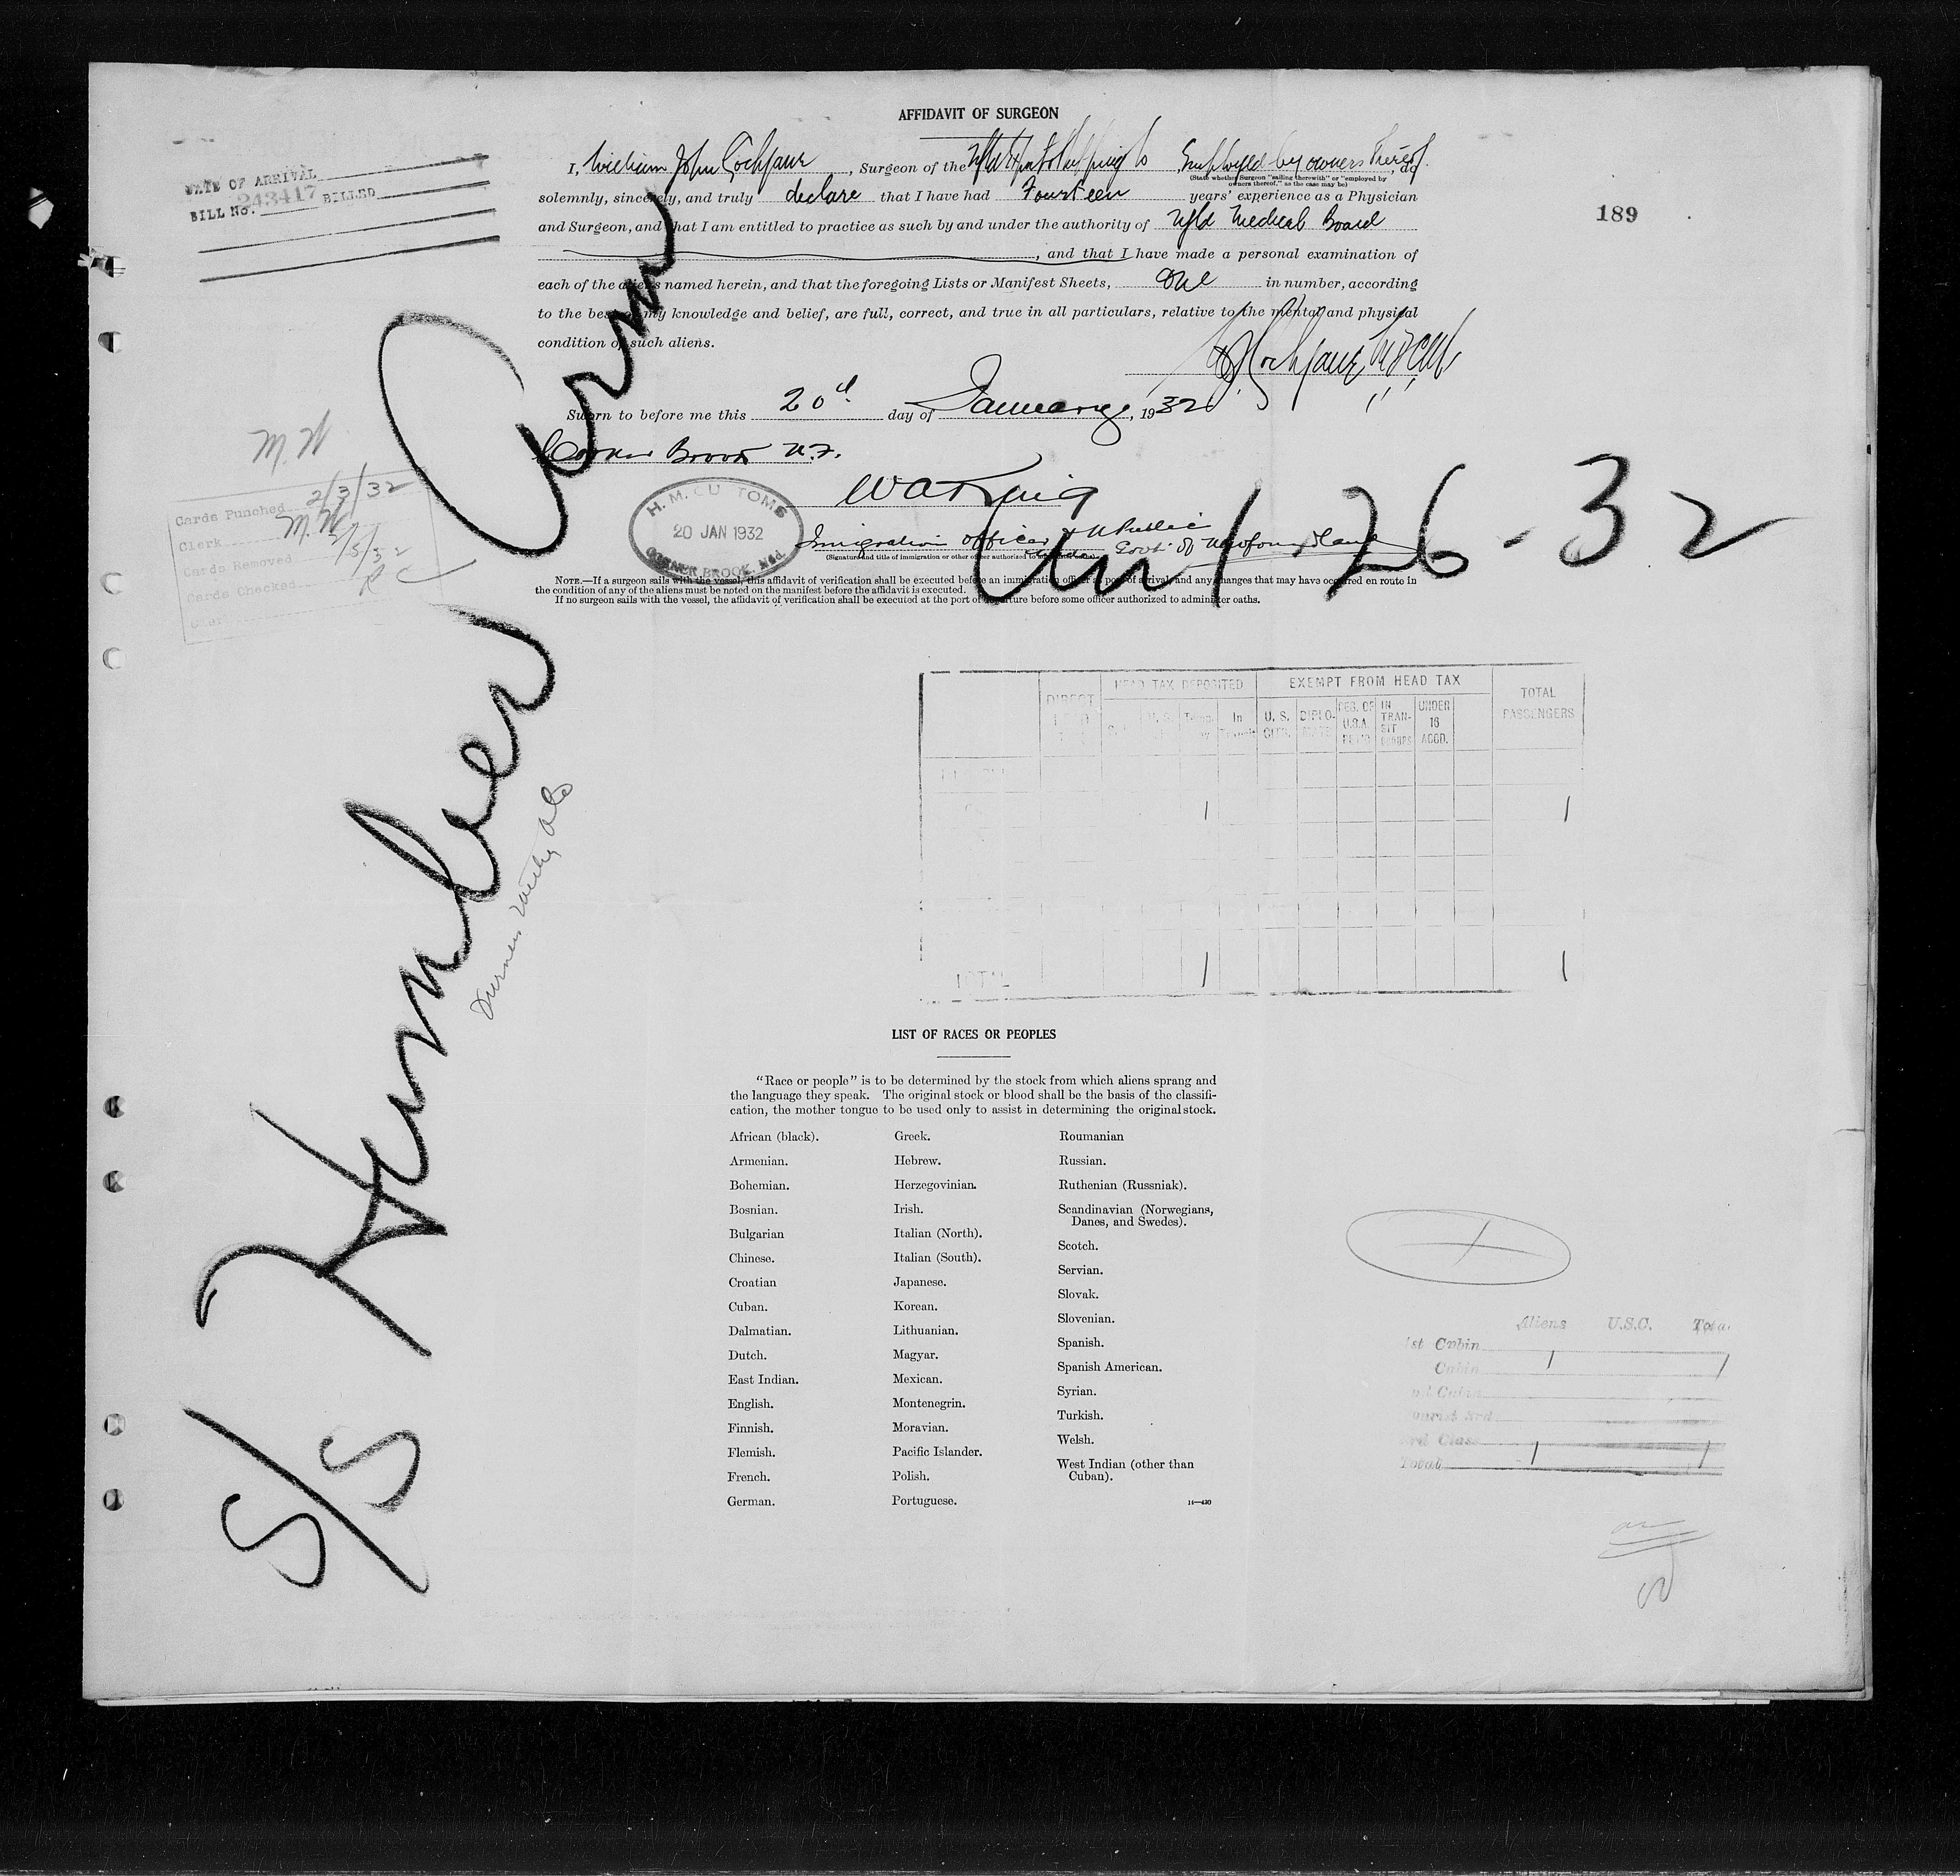 AFFIDAVIT OF SURGEON
I, William John Cochrane, Surgeon of the Nfld Export Shipping Co Employed by owners Thereof, do
(State whether Surgeon "sailing therewith" or "employed by
owners thereof," as the case may be)
solemnly, sincerely, and truly declare that I have had Fourteen years' experience as a Physician
and Surgeon, and that I am entitled to practice as such by and under the authority of Nfld Medical Board
, and that I have made a personal examination of
each of the aliens named herein, and that the foregoing Lists or Manifest Sheets, one in number, according
to the best of my knowledge and belief, are full, correct, and true in all particulars, relative to the mental and physical
condition of such aliens.
Sworn to before me this 20th day of January, 1932
Corner Brook N.F.
H. M. CUSTOMS
20 JAN 1932
CORNER BROOK. Nfld.
Immigration officer & N Public
Govt. of Newfoundland
NOTE.—If a surgeon sails with the vessel, this affidavit of verification shall be executed before an immigration officer at port of arrival, and any changes that may have occurred en route in
the condition of any of the aliens must be noted on the manifest before the affidavit is executed.
If no surgeon sails with the vessel, the affidavit of verification shall be executed at the port of departure before some officer authorized to administer oaths.
DATE OF ARRIVAL
BILL No. 243417 BILLED
189
M. W
Cards Punched 2/3/32
Clerk M. W
Cards Removed
Cards Checked
S/S Humber Arm
Arr 1-26-32
DIRECT
HEAD TAX DEPOSITED
EXEMPT FROM HEAD TAX
TOTAL
PASSENGERS
In
Transit
U. S.
CITS.
DIPLO-
MATS
IN
TRAN-
SIT
GROUPS
UNDER
16
ACCD.
1 1
TOTAL 1 1
LIST OF RACES OR PEOPLES
"Race or people" is to be determined by the stock from which aliens sprang and
the language they speak. The original stock or blood shall be the basis of the classifi-
cation, the mother tongue to be used only to assist in determining the original stock.
African (black).
Armenian.
Bohemian.
Bosnian.
Bulgarian
Chinese.
Croatian
Cuban.
Dalmatian.
Dutch.
East Indian.
English.
Finnish.
Flemish.
French.
German.
Greek.
Hebrew.
Herzegovinian.
Irish.
Italian (North).
Italian (South).
Japanese.
Korean.
Lithuanian.
Magyar.
Mexican.
Montenegrin.
Moravian.
Pacific Islander.
Polish.
Portuguese.
Roumanian
Russian.
Ruthenian (Russniak).
Scandinavian (Norwegians,
Danes, and Swedes).
Scotch.
Servian.
Slovak.
Slovenian.
Spanish.
Spanish American.
Syrian.
Turkish.
Welsh.
West Indian (other than
Cuban).
14—430
Aliens U.S.C. Total
1st Cabin
Cabin 1 1
2nd Cabin
Tourist 3rd
3rd Class
Total 1 1